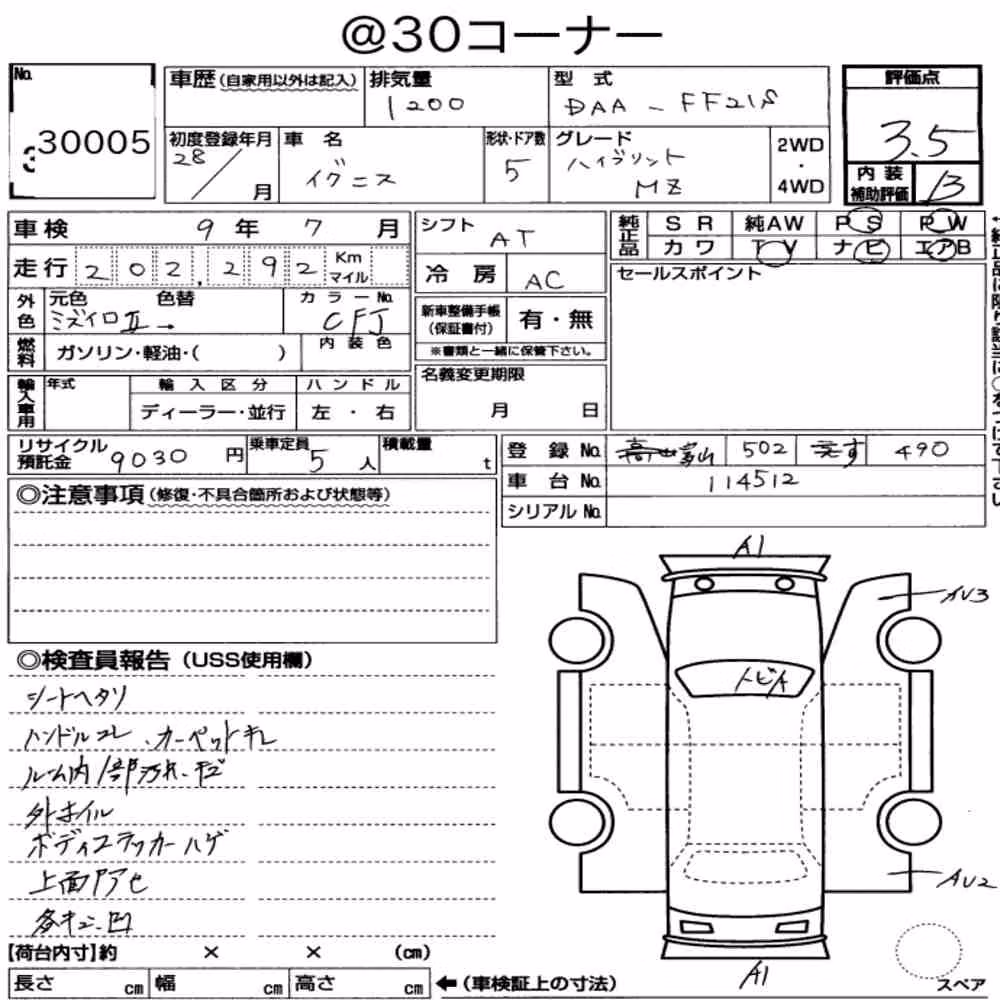 @30コーナー
No. 30005
車歴(自家用以外は記入) 排気量 1200 型式 DAA-FF21S 評価点 3.5
初度登録年月 28/ 月 車名 イグニス 形状・ドア数 5 グレード ハイブリット MZ 2WD・4WD 内装補助評価 B
車検 9年 7月 シフト AT 純正品 SR 純AW PS PW
走行 202,292 Km マイル 冷房 AC カワ TV ナビ エアB
外色 元色 色替 カラーNo. セールスポイント
ミズイロⅡ→ CFJ 新車整備手帳(保証書付) 有・無
燃料 ガソリン・軽油・( ) 内装色 ※書類と一緒に保管下さい。
輸入車用 年式 輸入区分 ハンドル 名義変更期限
ディーラー・並行 左・右 月 日
リサイクル預託金 9030円 乗車定員 5人 積載量 t 登録No. 富山 502 490
◎注意事項(修復・不具合箇所および状態等) 車台No. 114512
シリアルNo.
A1
AV3
トビA
◎検査員報告(USS使用欄)
シートヘタリ
ハンドルコレ、カーペットキレ
ルーム内/部汚れ、
外ホイル
ボディステッカーハゲ
上面アアセ
各キズ、凹
AV2
A1
【荷台内寸】約 × × (cm)
長さ cm 幅 cm 高さ cm ←(車検証上の寸法) スペア